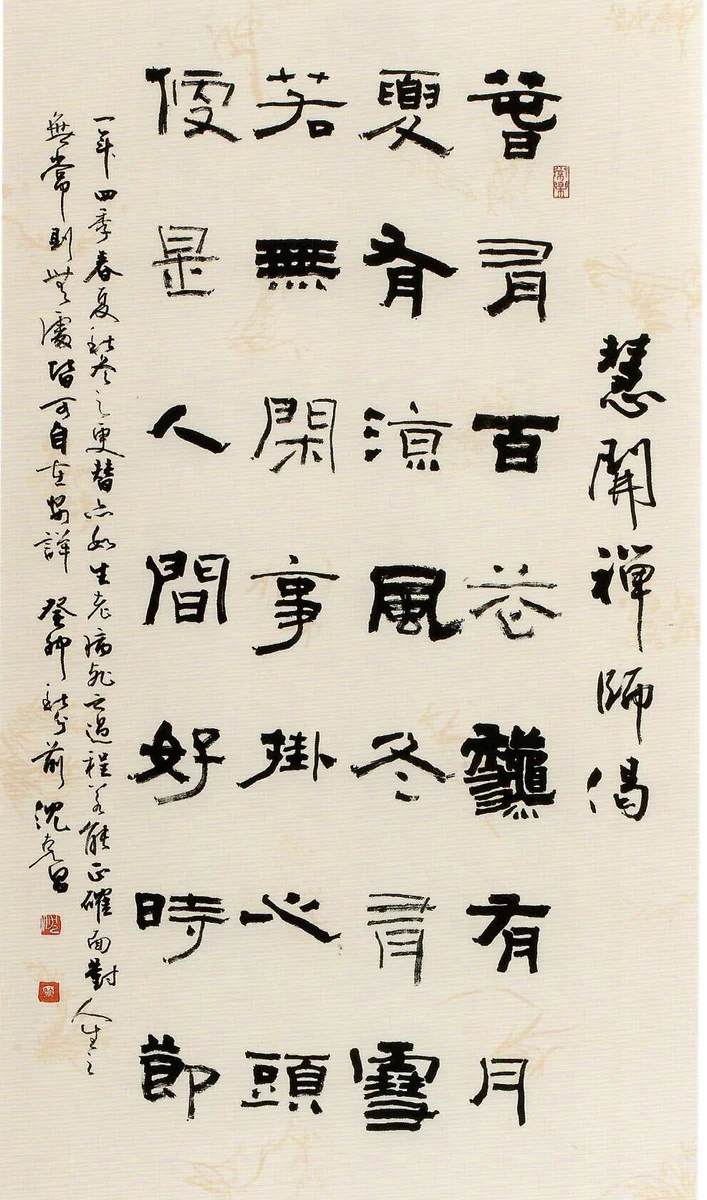 慧開禪師偈
春有百花龝有月
夏有涼風冬有雪
若無閑事掛心頭
便是人間好時節
一年四季春夏秋冬之更替亦如生老病死之過程若能正確面對人生之
無常則無處皆可自在安詳 癸卯秋分前 沈克昌